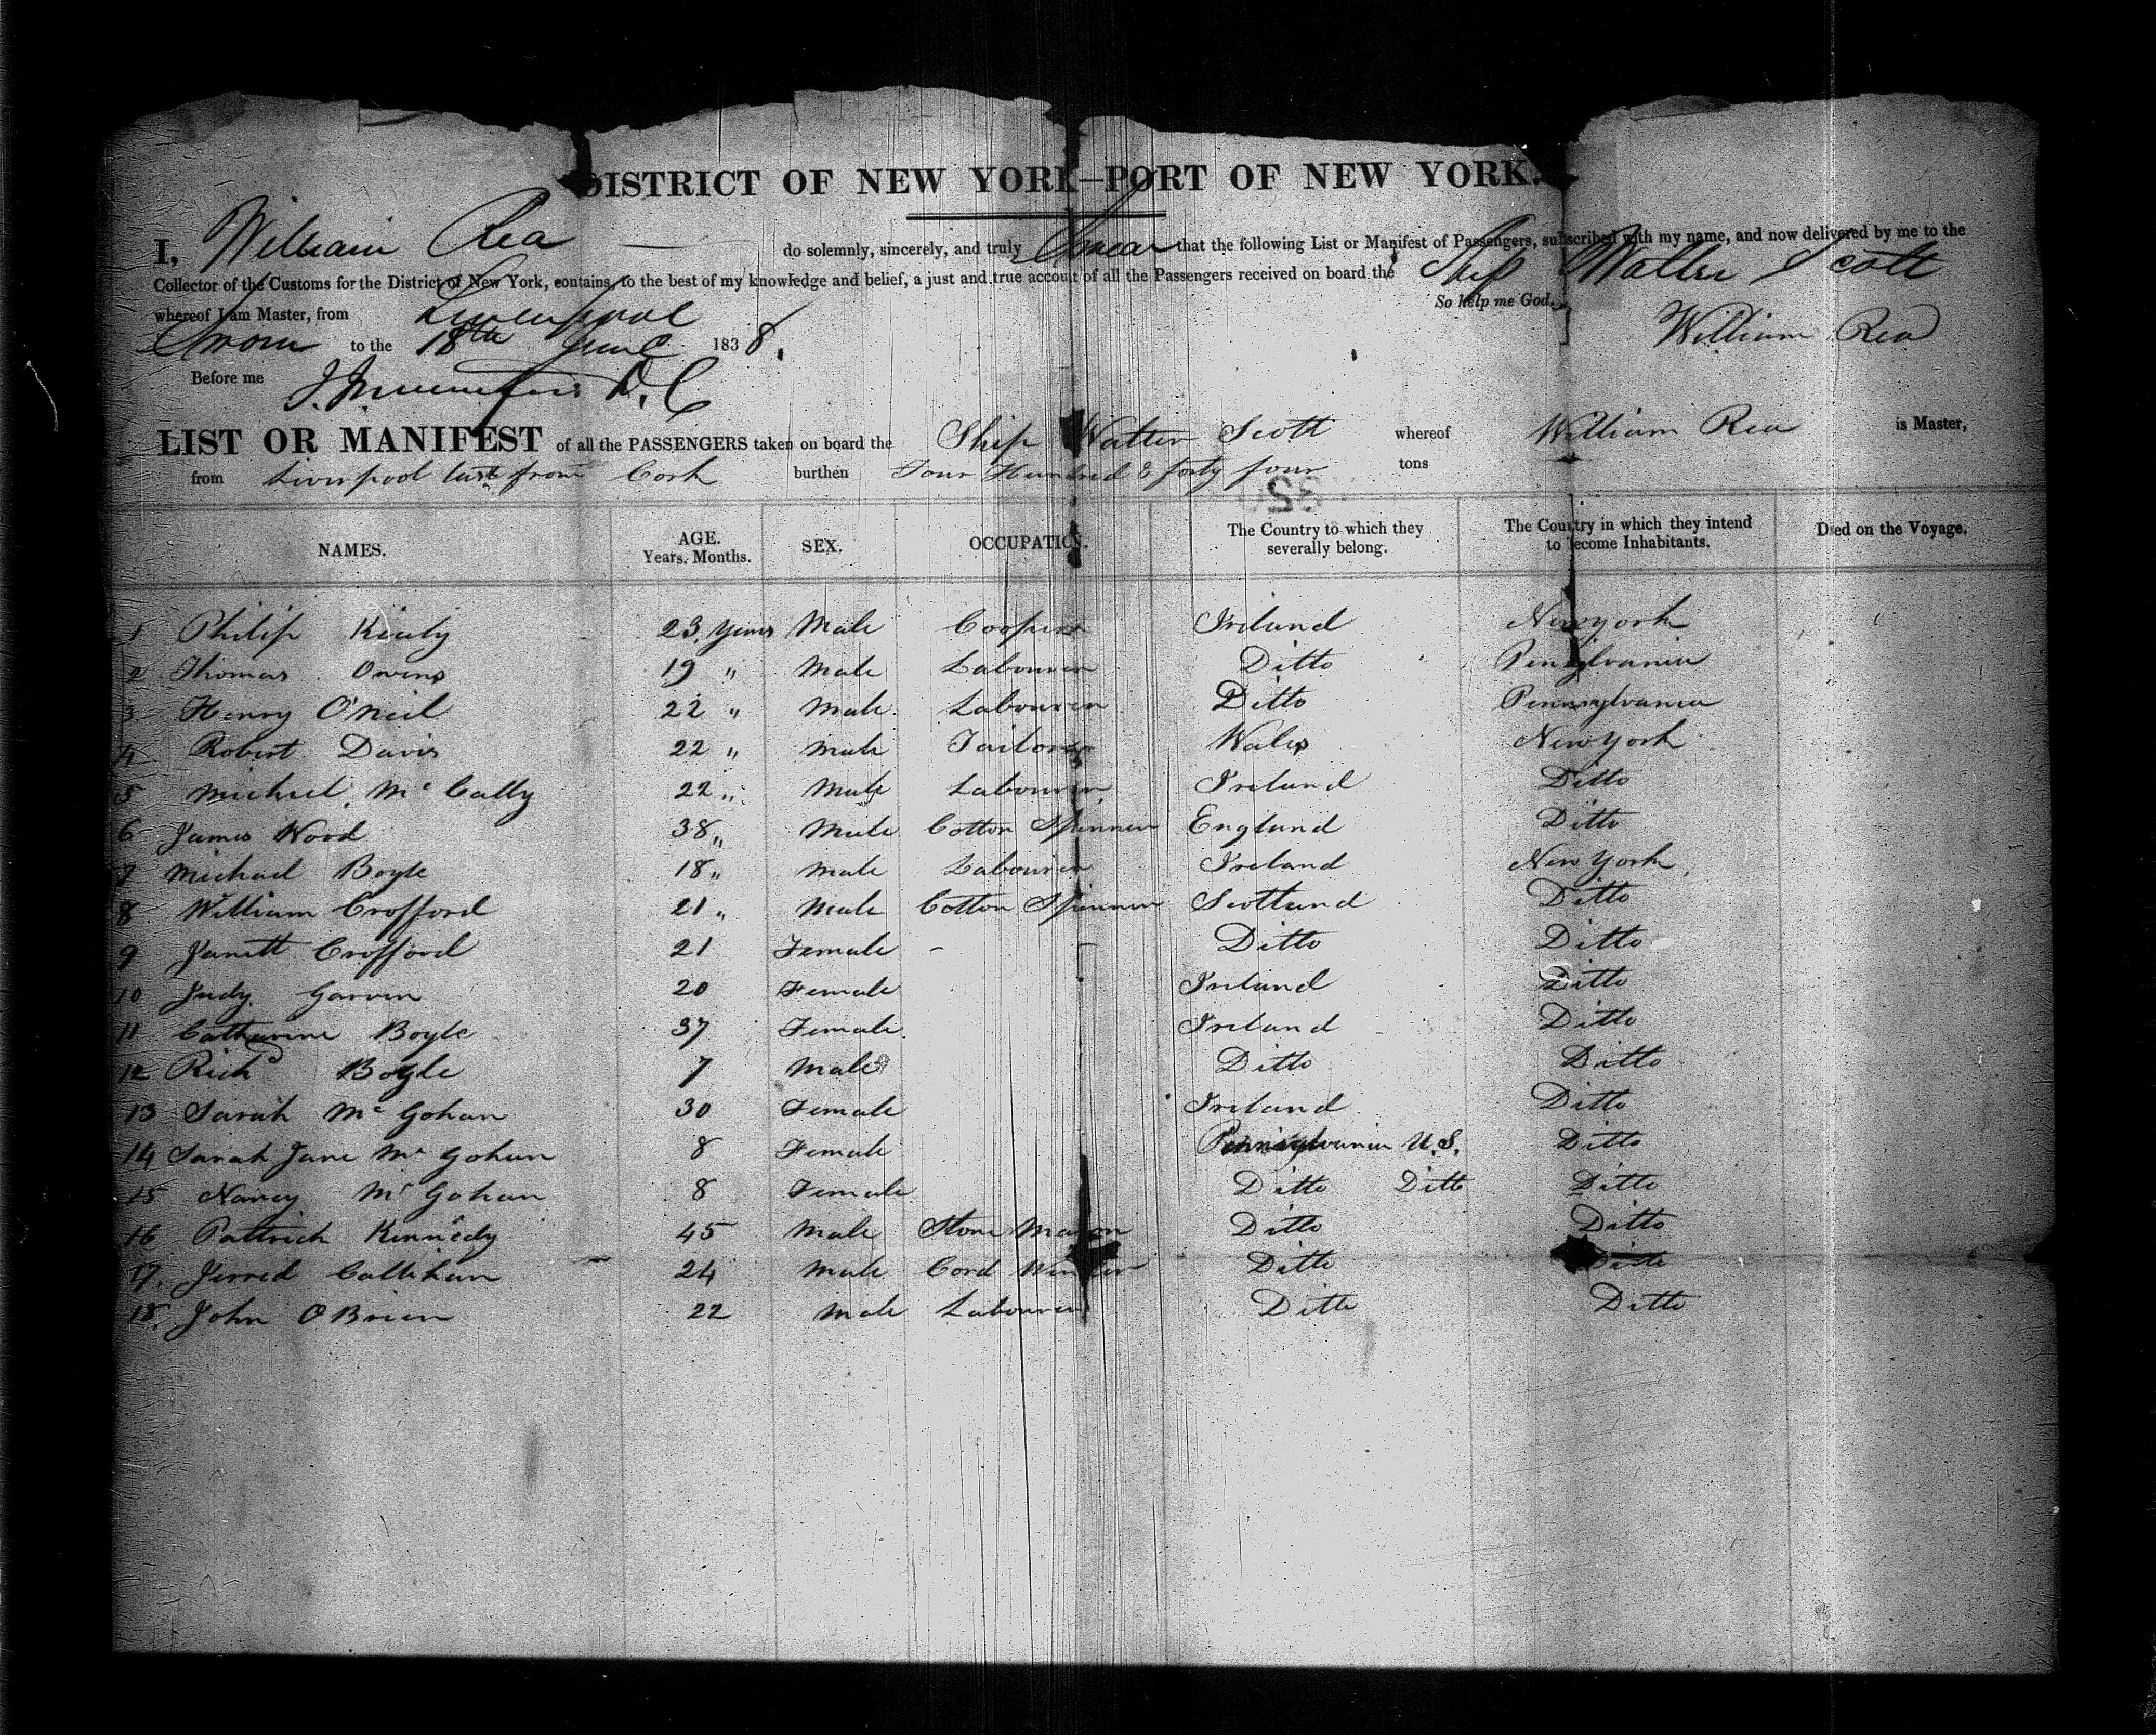 DISTRICT OF NEW YORK—PORT OF NEW YORK.
I, William Rea do solemnly, sincerely, and truly Swear that the following List or Manifest of Passengers, subscribed with my name, and now delivered by me to the
Collector of the Customs for the District of New York, contains, to the best of my knowledge and belief, a just and true account of all the Passengers received on board the Ship Walter Scott
whereof I am Master, from Liverpool So help me God.
Sworn to the 18th June 1838. William Rea
Before me D. C
LIST OR MANIFEST of all the PASSENGERS taken on board the Ship Walter Scott whereof William Rea is Master,
from Liverpool last from Cork burthen Four Hundred & forty four tons
NAMES. AGE. Years. Months. SEX. OCCUPATION. The Country to which they severally belong. The Country in which they intend to become Inhabitants. Died on the Voyage.
1 Philip Kiely 23 years Male Cooper Ireland New york
2 Thomas Owens 19 " Male Labourer Ditto Pensylvania
3 Henry O'Neil 22 " Male Labourer Ditto Pennsylvania
4 Robert Davis 22 " Male Tailor Wales New York
5 Michael Mc Cally 22 " Male Labourer Ireland Ditto
6 James Wood 38 " Male Cotton Spinner England Ditto
7 Michael Boyle 18 " Male Labourer Ireland New York
8 William Crofford 21 " Male Cotton Spinner Scotland Ditto
9 Janett Crofford 21 Female - - Ditto Ditto
10 Judy Garven 20 Female Ireland Ditto
11 Catharine Boyle 37 Female Ireland Ditto
12 Richd Boyle 7 Male Ditto Ditto
13 Sarah Mc Gohan 30 Female Ireland Ditto
14 Sarah Jane Mc Gohan 8 Female Pennsylvania U.S. Ditto
15 Nancy Mc Gohan 8 Female Ditto Ditto Ditto
16 Pattrick Kennedy 45 Male Stone Mason Ditto Ditto
17. Jerred Callihan 24 Male Cord Ditto Ditto
18. John O Brien 22 Male Labourer Ditto Ditto